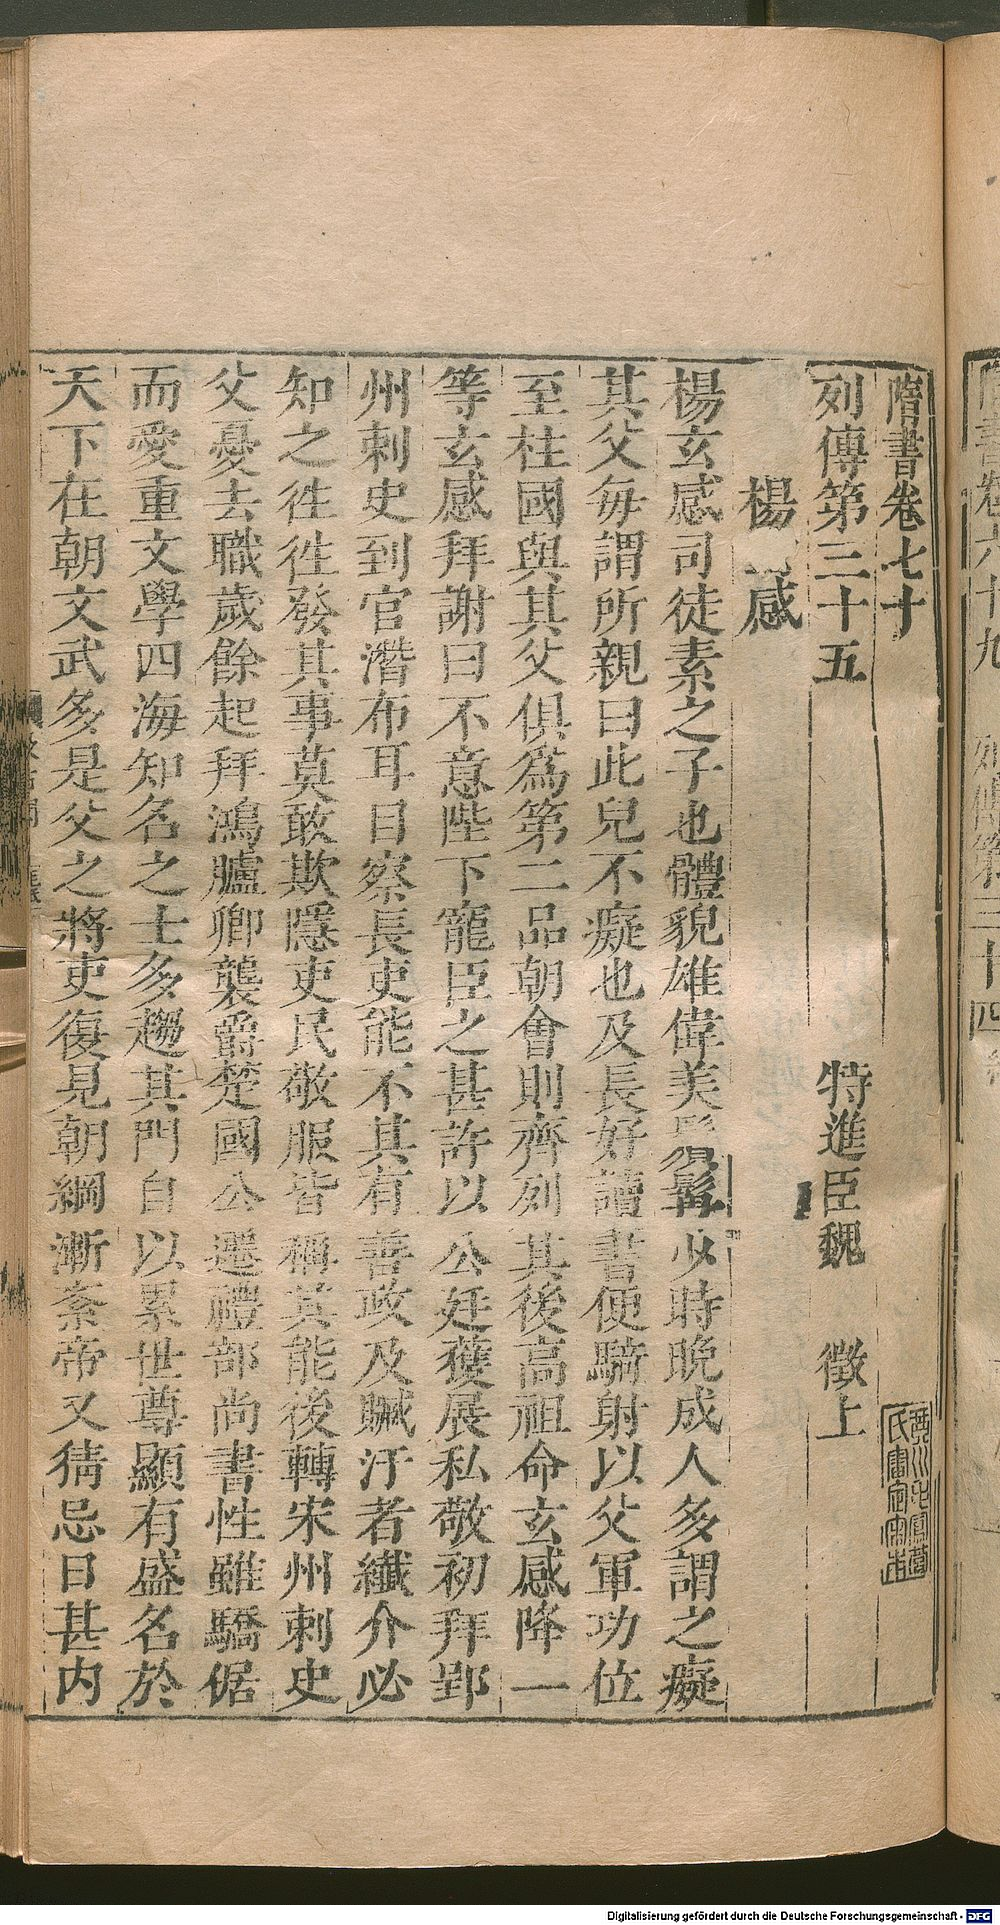 隋書卷七十
列傳第三十五
特進臣魏 徵上
楊 感
楊玄感司徒素之子也體貌雄偉美鬚髯少時晚成人多謂之癡
其父每謂所親曰此兒不癡也及長好讀書便騎射以父軍功位
至柱國與其父俱爲第二品朝會則齊列其後高祖命玄感降一
等玄感拜謝曰不意陛下寵臣之甚許以公廷獲展私敬初拜郢
州刺史到官潛布耳目察長吏能不其有善政及贓汙者纖介必
知之徃徃發其事莫敢欺隱吏民敬服皆稱其能後轉宋州刺史
父憂去職歲餘起拜鴻臚卿襲爵楚國公遷禮部尚書性雖驕倨
而愛重文學四海知名之士多趨其門自以累世尊顯有盛名於
天下在朝文武多是父之將吏復見朝綱漸紊帝又猜忌日甚内
隋書卷六十九 列傳第三十四
Digitalisierung gefördert durch die Deutsche Forschungsgemeinschaft - DFG